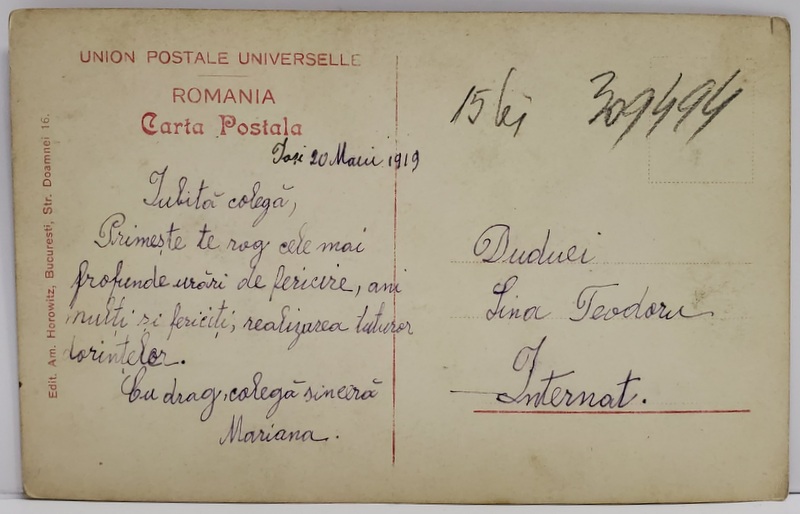 UNION POSTALE UNIVERSELLE
ROMANIA
Carta Postala
Iași 20 Maiu 1919
Iubită colegă,
Primește te rog cele mai
profunde urări de fericire, ani
mulți și fericiți, realizarea tuturor
dorințelor.
Cu drag, colegă sinceră
Mariana.
Edit. Am. Horowitz, Bucuresti, Str. Doamnei 16.
15 lei 309494
Duduei
Lina Teodoru
Internat.